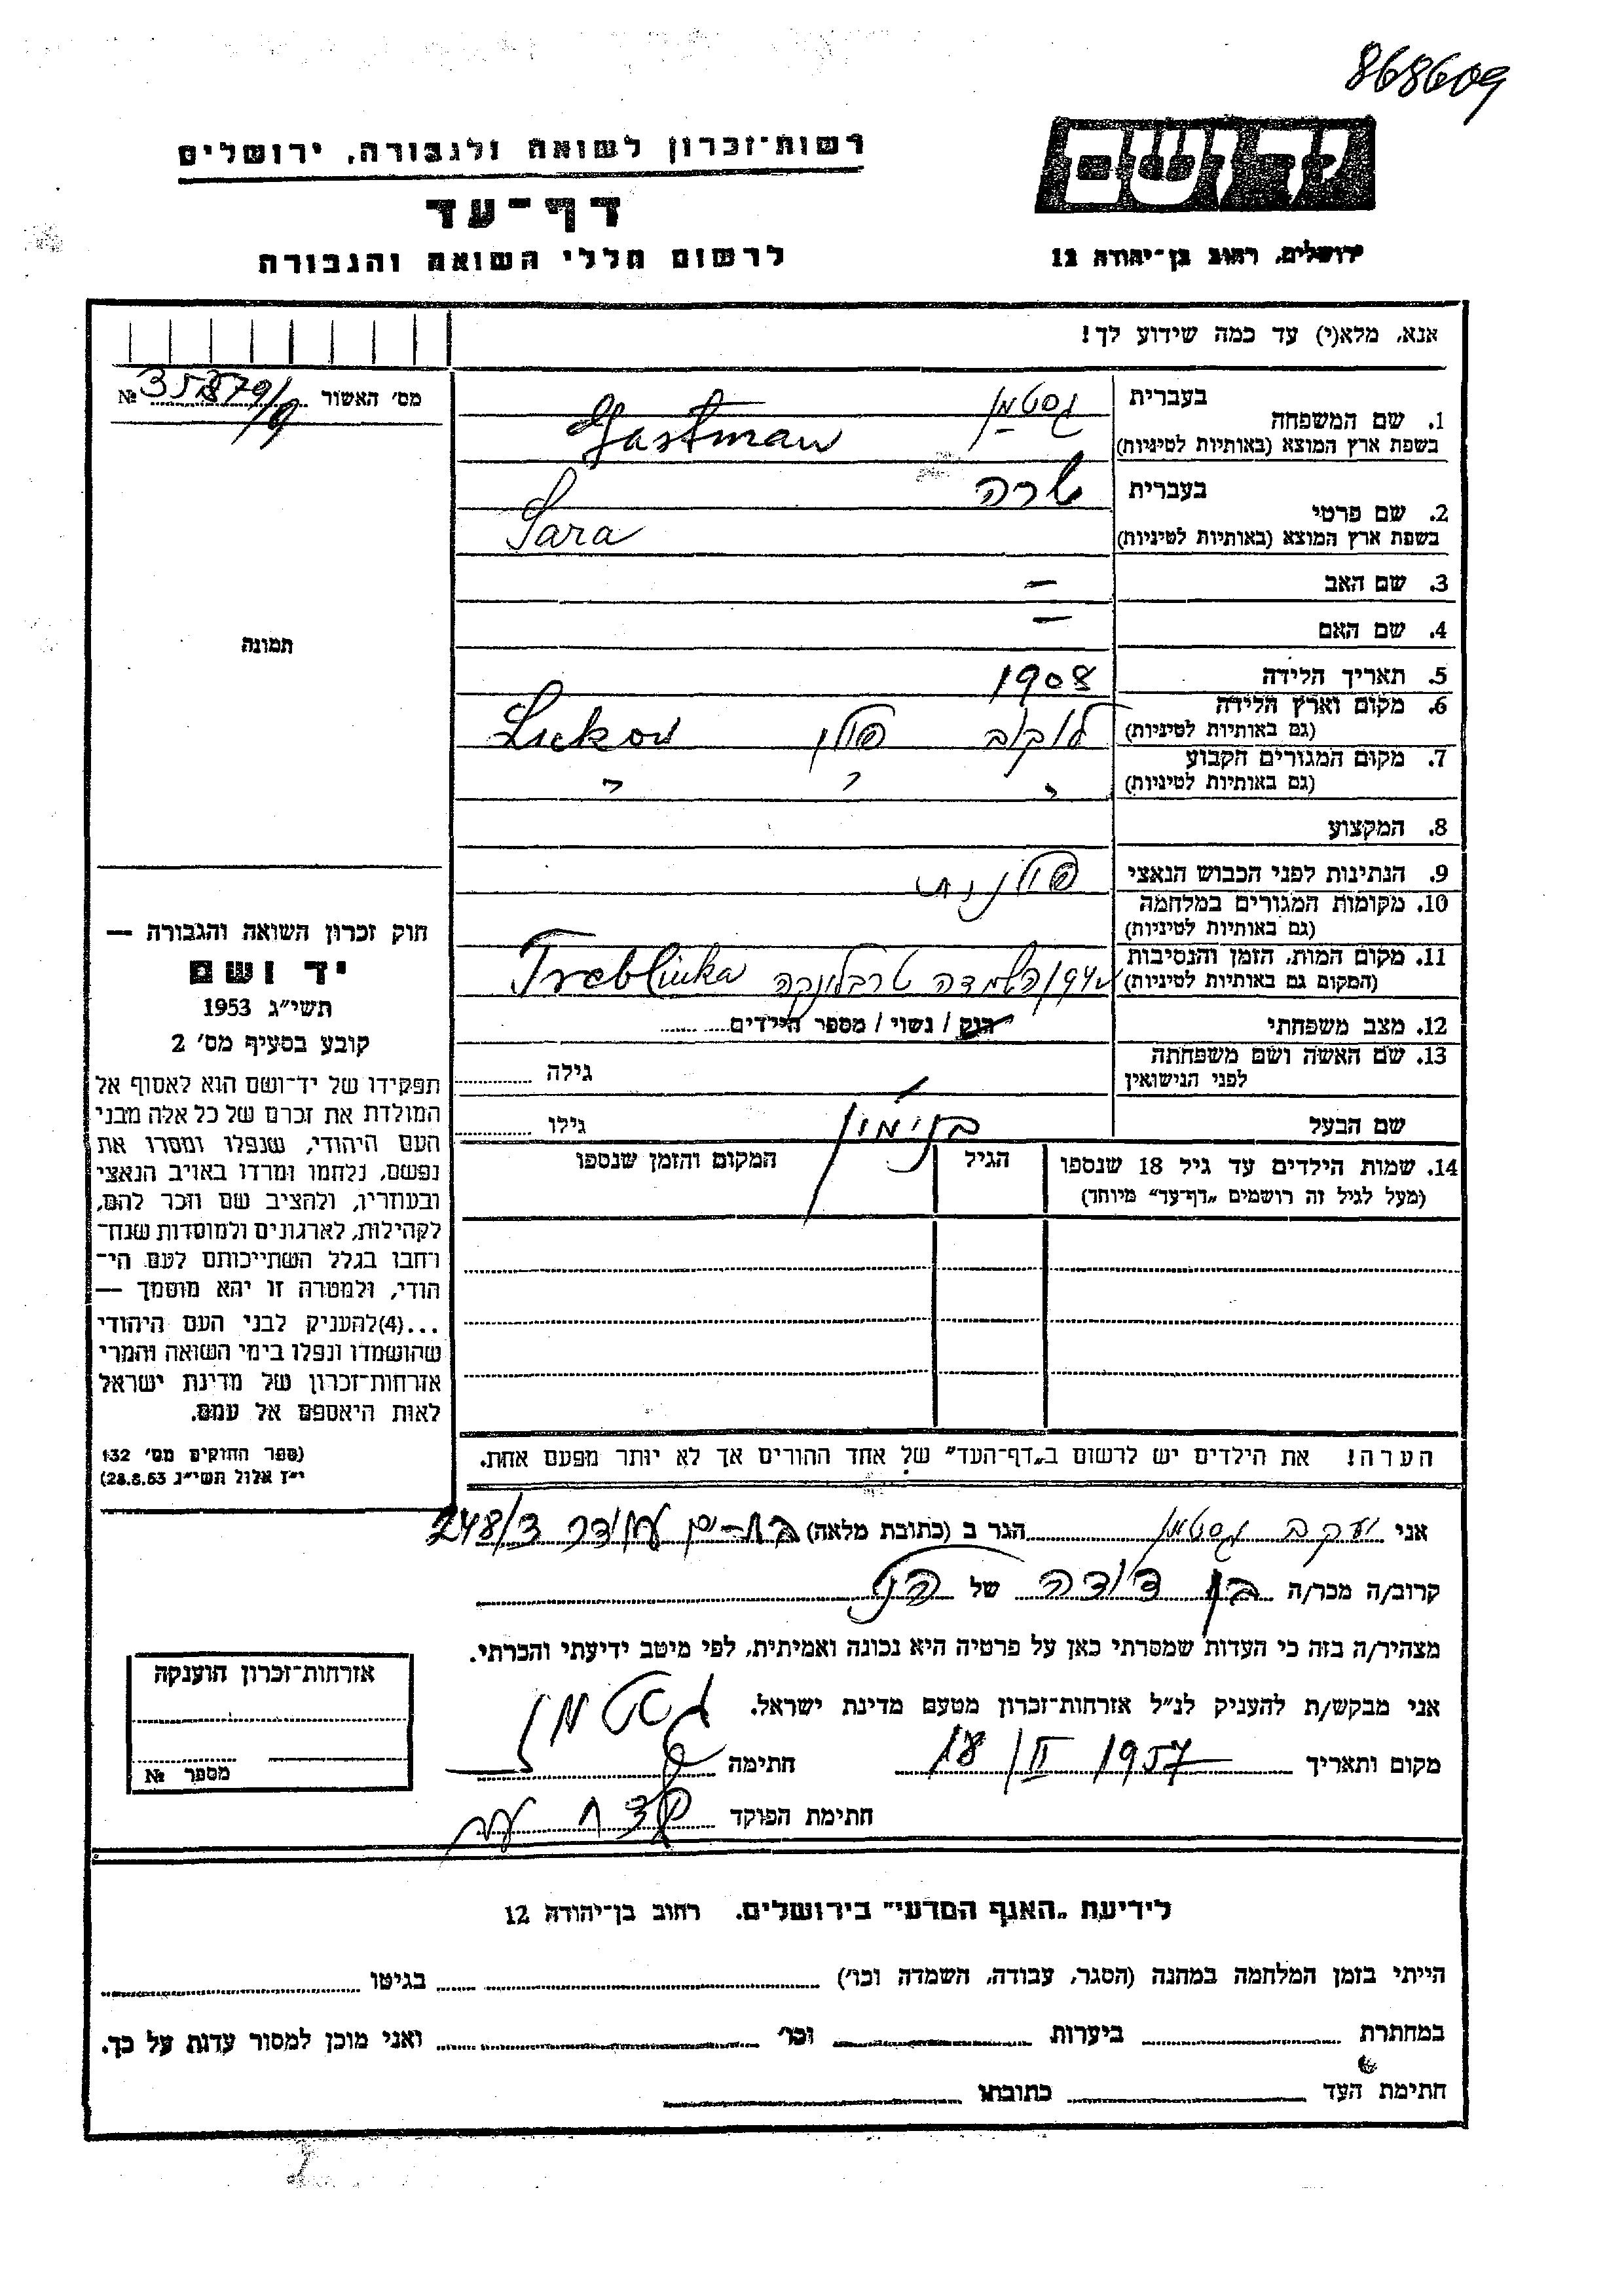 868609
יד ושם
ירושלים, רחוב בן־יהודה 12
רשות־זכרון לשואה ולגבורה, ירושלים
דף־עד
לרשום חללי השואה והגבורה
אנא, מלא(י) עד כמה שידוע לך!
מס׳ האשור № 35879/9
תמונה
1. שם המשפחה בעברית גסטמן
בשפת ארץ המוצא (באותיות לטיניות) Gastman
2. שם פרטי בעברית שרה
בשפת ארץ המוצא (באותיות לטיניות) Sara
3. שם האב —
4. שם האם —
5. תאריך הלידה 1908
6. מקום וארץ הלידה לוקוב פולין Lukow
(גם באותיות לטיניות)
7. מקום המגורים הקבוע " " "
(גם באותיות לטיניות)
8. המקצוע
9. הנתינות לפני הכבוש הנאצי פולנית
10. מקומות המגורים במלחמה
(גם באותיות לטיניות)
11. מקום המות, הזמן והנסיבות השמדה טרבלינקה Treblinka
(המקום גם באותיות לטיניות)
12. מצב משפחתי רווק / נשוי / מספר הילדים
13. שם האשה ושם משפחתה גילה
לפני הנישואין
שם הבעל בנימין גילו
14. שמות הילדים עד גיל 18 שנספו הגיל המקום והזמן שנספו
(מעל לגיל זה רושמים „דף־עד” מיוחד)
הערה! את הילדים יש לרשום ב„דף־העד” של אחד ההורים אך לא יותר מפעם אחת.
חוק זכרון השואה והגבורה —
יד ושם
תשי״ג 1953
קובע בסעיף מס׳ 2
תפקידו של יד־ושם הוא לאסוף אל
המולדת את זכרם של כל אלה מבני
העם היהודי, שנפלו ומסרו את
נפשם, נלחמו ומרדו באויב הנאצי
ובעוזריו, ולהציב שם וזכר להם,
לקהילות, לארגונים ולמוסדות שנח־
רחבו בגלל השתייכותם לעם הי־
הודי, ולמטרה זו יהא מוסמך —
...(4)להעניק לבני העם היהודי
שהושמדו ונפלו בימי השואה והמרי
אזרחות־זכרון של מדינת ישראל
לאות היאספם אל עמם.
(ספר החוקים מס׳ 132
י״ז אלול תשי״ג 28.8.53)
אני יעקב גסטמן הגר ב (כתובת מלאה) בת-ים 248/3
קרוב/ה מכר/ה בן דודה של הנ״ל
מצהיר/ה בזה כי העדות שמסרתי כאן על פרטיה היא נכונה ואמיתית, לפי מיטב ידיעתי והכרתי.
אני מבקש/ת להעניק לנ״ל אזרחות־זכרון מטעם מדינת ישראל.
מקום ותאריך 18/II 1957 חתימה גסטמן
חתימת הפוקד
אזרחות־זכרון הוענקה
מספר №
לידיעת „האגף המדעי” בירושלים. רחוב בן־יהודה 12
הייתי בזמן המלחמה במחנה (הסגר, עבודה, השמדה וכו׳) בגיטו
במחתרת ביערות וכו׳ ואני מוכן למסור עדות על כך.
חתימת העד כתובתו